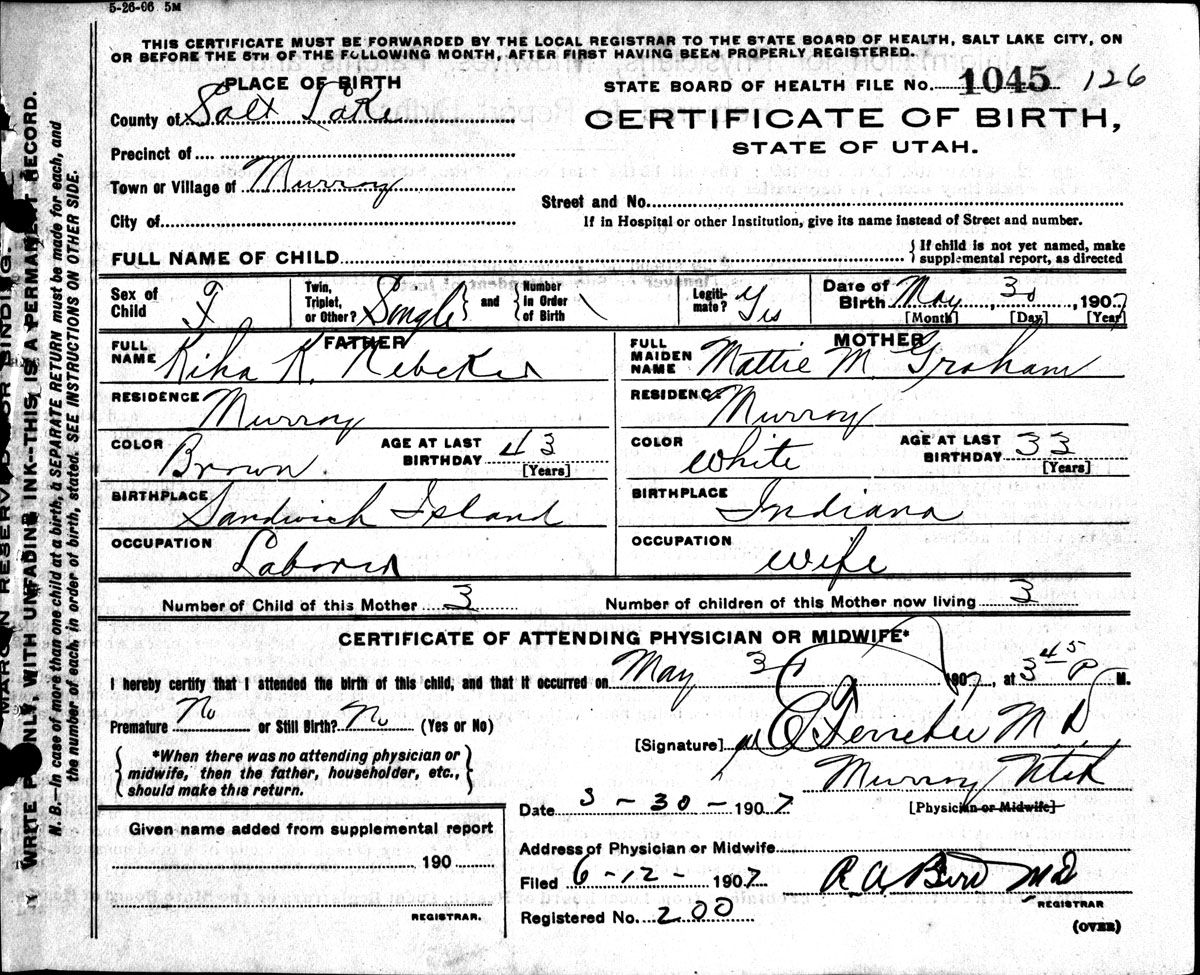 5-26-06 5M
THIS CERTIFICATE MUST BE FORWARDED BY THE LOCAL REGISTRAR TO THE STATE BOARD OF HEALTH, SALT LAKE CITY, ON
OR BEFORE THE 5TH OF THE FOLLOWING MONTH, AFTER FIRST HAVING BEEN PROPERLY REGISTERED.
PLACE OF BIRTH
STATE BOARD OF HEALTH FILE No. 1045 126
County of Salt Lake
CERTIFICATE OF BIRTH,
STATE OF UTAH.
Precinct of
Town or Village of Murray
Street and No.
City of
If in Hospital or other Institution, give its name instead of Street and number.
FULL NAME OF CHILD
{ If child is not yet named, make supplemental report, as directed
Sex of Child F
Twin, Triplet, or Other? Single } and { Number in Order of Birth
Legitimate? Yes
Date of Birth May 30, 1907
[Month] [Day] [Year]
FATHER
FULL NAME Kiha K. Nebeker
RESIDENCE Murray
COLOR Brown. AGE AT LAST BIRTHDAY 43 [Years]
BIRTHPLACE Sandwich Island
OCCUPATION Laborer
MOTHER
FULL MAIDEN NAME Mattie M. Graham
RESIDENCE Murray
COLOR White AGE AT LAST BIRTHDAY 33 [Years]
BIRTHPLACE Indiana
OCCUPATION Wife
Number of Child of this Mother 3 Number of children of this Mother now living 3
CERTIFICATE OF ATTENDING PHYSICIAN OR MIDWIFE*
I hereby certify that I attended the birth of this child, and that it occurred on May 30 1907, at 3 45 P M.
Premature No or Still Birth? No (Yes or No)
[Signature] M D
Murray Utah
{ *When there was no attending physician or midwife, then the father, householder, etc., should make this return. }
Date 5-30-1907 [Physician or Midwife]
Given name added from supplemental report
190
REGISTRAR.
Address of Physician or Midwife
Filed 6-12-1907 MD
REGISTRAR
Registered No. 200
(OVER)
MARGIN RESERVED FOR BINDING.
WRITE PLAINLY, WITH UNFADING INK--THIS IS A PERMANENT RECORD.
N. B.—In case of more than one child at a birth, a SEPARATE RETURN must be made for each, and
the number of each, in order of birth, stated. SEE INSTRUCTIONS ON OTHER SIDE.